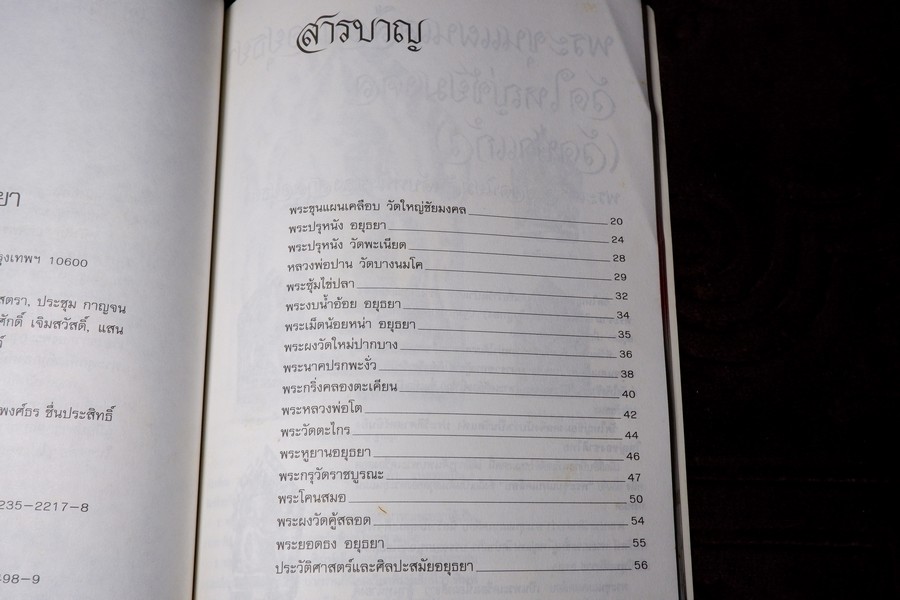 ยา
10600
สตรา, ประชุม กาญจน
ศักดิ์ เจิมสวัสดิ์, แสน
พงศ์ธร ชื่นประสิทธิ์
235-2217-8
498-9
สารบาญ
พระขุนแผนเคลือบ วัดใหญ่ชัยมงคล 20
พระปรุหนัง อยุธยา 24
พระปรุหนัง วัดพะเนียด 28
หลวงพ่อปาน วัดบางนมโค 29
พระซุ้มไข่ปลา 32
พระงบน้ำอ้อย อยุธยา 34
พระเม็ดน้อยหน่า อยุธยา 35
พระผงวัดใหม่ปากบาง 36
พระนาคปรกพะงั่ว 38
พระกริ่งคลองตะเคียน 40
พระหลวงพ่อโต 42
พระวัดตะไกร 44
พระหูยานอยุธยา 46
พระกรุวัดราชบูรณะ 47
พระโคนสมอ 50
พระผงวัดคู้สลอด 54
พระยอดธง อยุธยา 55
ประวัติศาสตร์และศิลปะสมัยอยุธยา 56